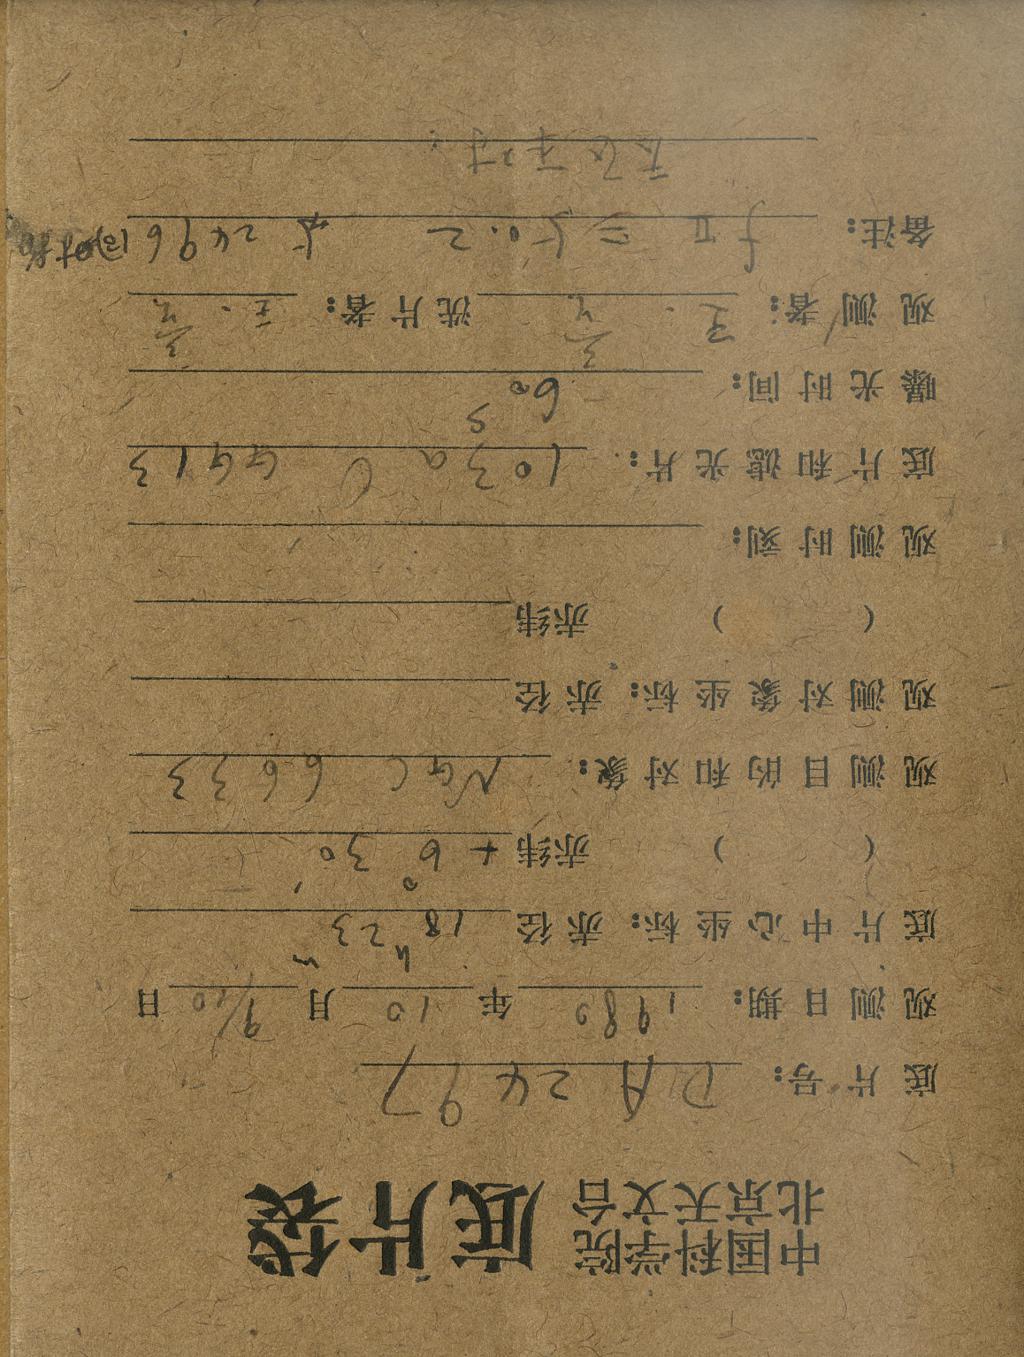 中国科学院
北京天文台 底片袋
底片号: DA 2497
观测日期: 1980 年 10 月 9/10 日
底片中心坐标: 赤径 18h 23m
( ) 赤纬 +6° 30′
观测目的和对象: NGC 6633
观测对象坐标: 赤径
( ) 赤纬
观测时刻:
底片和滤光片: 103aO GG13
曝光时间: 60s
观测者: 王. 洗片者: 王.
备注: fII = 50.2 与 2496 同时拍